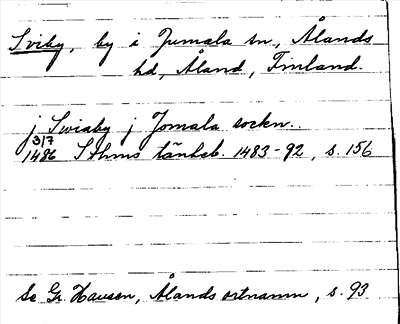 Sviby, by i Jumala sn, Ålands
hd, Åland, Finland.
j Swiaby j Jomala sockn..
3/7
1486 Sthms tänkeb. 1483-92, s. 156
Se Gr. Hausen, Ålands ortnamn, s. 93